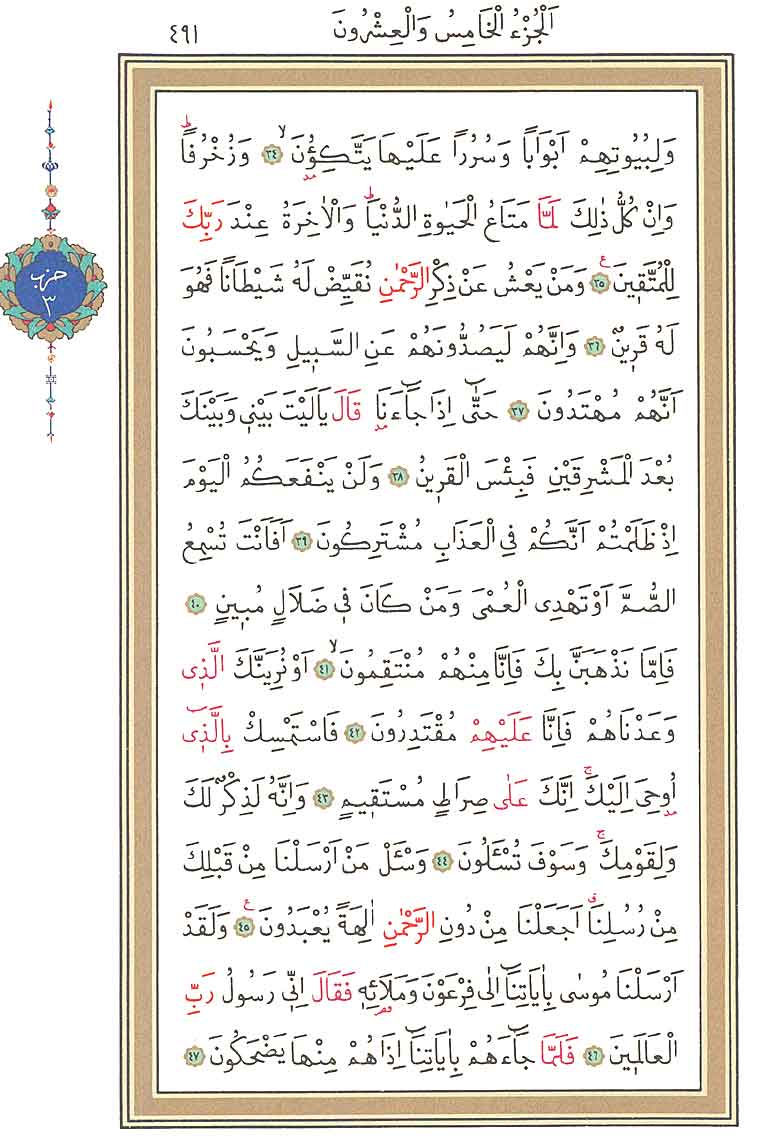 اَلْجُزْءُ الْخَامِسُ وَالْعِشْرُونَ
٤٩١
وَلِبُيُوتِهِمْ اَبْوَاباً وَسُرُراً عَلَيْهَا يَتَّكِؤُ۫نَۙ ٣٤ وَزُخْرُفاًۜ
وَاِنْ كُلُّ ذٰلِكَ لَمَّا مَتَاعُ الْحَيٰوةِ الدُّنْيَاۜ وَالْاٰخِرَةُ عِنْدَ رَبِّكَ
لِلْمُتَّق۪ينَ۟ ٣٥ وَمَنْ يَعْشُ عَنْ ذِكْرِ الرَّحْمٰنِ نُقَيِّضْ لَهُ شَيْطَاناً فَهُوَ
لَهُ قَر۪ينٌ ٣٦ وَاِنَّهُمْ لَيَصُدُّونَهُمْ عَنِ السَّب۪يلِ وَيَحْسَبُونَ
اَنَّهُمْ مُهْتَدُونَ ٣٧ حَتّٰٓى اِذَا جَٓاءَنَا قَالَ يَالَيْتَ بَيْن۪ي وَبَيْنَكَ
بُعْدَ الْمَشْرِقَيْنِ فَبِئْسَ الْقَر۪ينُ ٣٨ وَلَنْ يَنْفَعَكُمُ الْيَوْمَ
اِذْ ظَلَمْتُمْ اَنَّكُمْ فِي الْعَذَابِ مُشْتَرِكُونَ ٣٩ اَفَاَنْتَ تُسْمِعُ
الصُّمَّ اَوْ تَهْدِي الْعُمْيَ وَمَنْ كَانَ ف۪ي ضَلَالٍ مُب۪ينٍ ٤٠
فَاِمَّا نَذْهَبَنَّ بِكَ فَاِنَّا مِنْهُمْ مُنْتَقِمُونَۙ ٤١ اَوْ نُرِيَنَّكَ الَّذ۪ي
وَعَدْنَاهُمْ فَاِنَّا عَلَيْهِمْ مُقْتَدِرُونَ ٤٢ فَاسْتَمْسِكْ بِالَّذ۪ٓي
اُو۫حِيَ اِلَيْكَۚ اِنَّكَ عَلٰى صِرَاطٍ مُسْتَق۪يمٍ ٤٣ وَاِنَّهُ لَذِكْرٌ لَكَ
وَلِقَوْمِكَۚ وَسَوْفَ تُسْـَٔلُونَ ٤٤ وَسْـَٔلْ مَنْ اَرْسَلْنَا مِنْ قَبْلِكَ
مِنْ رُسُلِنَا اَجَعَلْنَا مِنْ دُونِ الرَّحْمٰنِ اٰلِهَةً يُعْبَدُونَ۟ ٤٥ وَلَقَدْ
اَرْسَلْنَا مُوسٰى بِاٰيَاتِنَٓا اِلٰى فِرْعَوْنَ وَمَلَا۬ئِه۪ فَقَالَ اِنّ۪ي رَسُولُ رَبِّ
الْعَالَم۪ينَ ٤٦ فَلَمَّا جَٓاءَهُمْ بِاٰيَاتِنَٓا اِذَا هُمْ مِنْهَا يَضْحَكُونَ ٤٧
حزب
٣